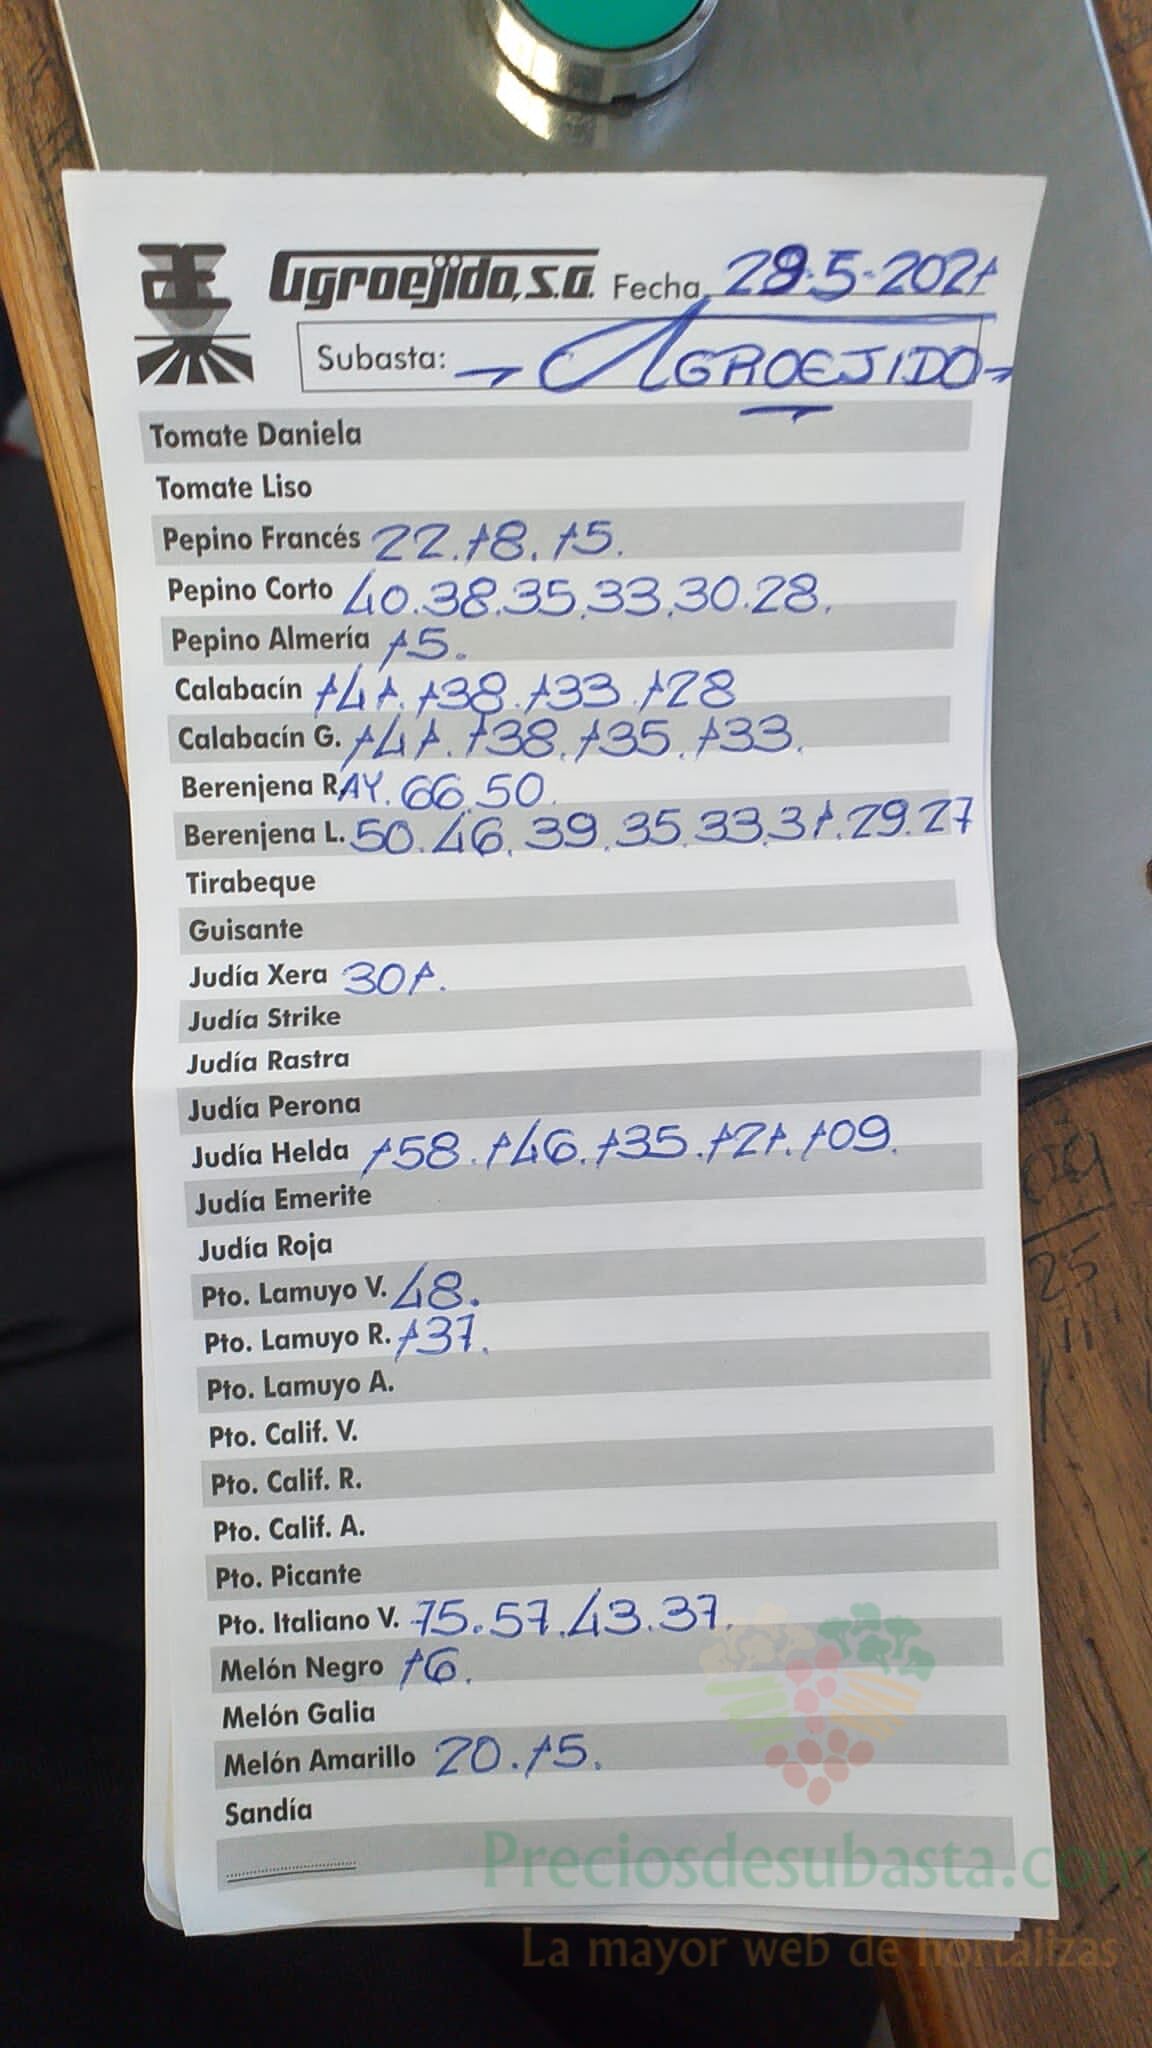 Agroejido, S.A. Fecha 29-5-2021
Subasta: AGROEJIDO
Tomate Daniela
Tomate Liso
Pepino Francés 22. 18. 15.
Pepino Corto 40. 38. 35. 33. 30. 28.
Pepino Almería 15.
Calabacín 141. 138. 133. 128
Calabacín G. 141. 138. 135. 133.
Berenjena RAY. 66. 50.
Berenjena L. 50. 46. 39. 35. 33. 31. 29. 27
Tirabeque
Guisante
Judía Xera 301.
Judía Strike
Judía Rastra
Judía Perona
Judía Helda 158. 146. 135. 121. 109.
Judía Emerite
Judía Roja
Pto. Lamuyo V. 48.
Pto. Lamuyo R. 137.
Pto. Lamuyo A.
Pto. Calif. V.
Pto. Calif. R.
Pto. Calif. A.
Pto. Picante
Pto. Italiano V. 75. 57. 43. 37.
Melón Negro 16.
Melón Galia
Melón Amarillo 20. 15.
Sandía
Preciosdesubasta.com
La mayor web de hortalizas